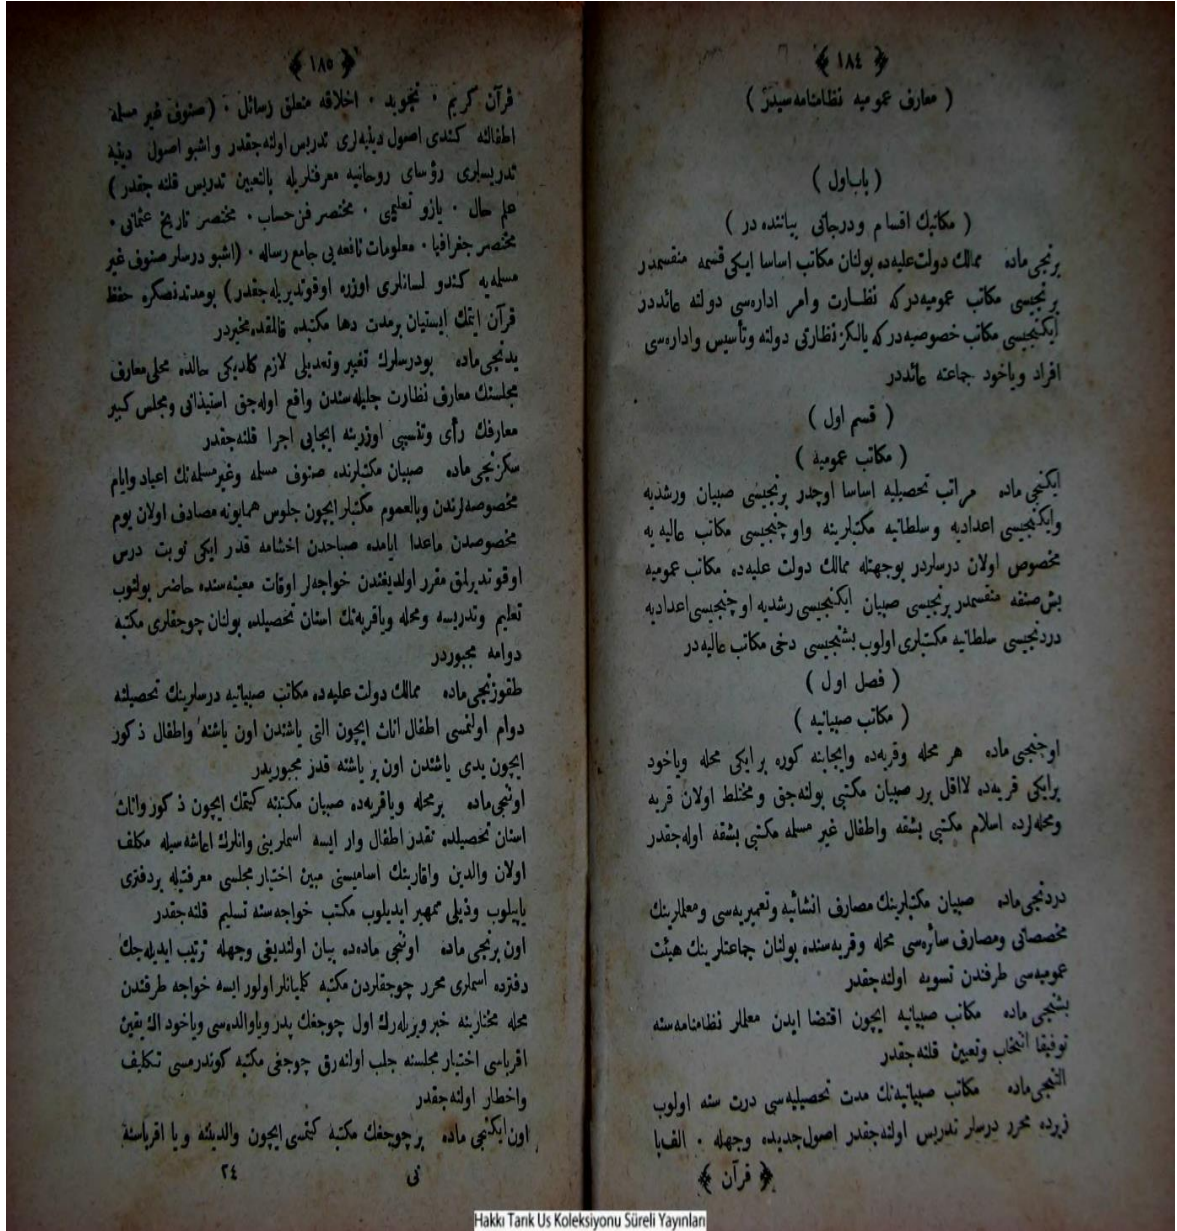 ﴿ ١٨٤ ﴾
( معارف عموميه نظامنامه سيدر )
( باب اول )
( مكاتبك اقسام ودرجاتى بياننده در )
برنجى ماده ممالك دولت عليه ده بولنان مكاتب اساسا ايكى قسمه منقسمدر
برنجيسى مكاتب عموميه در كه نظارت وامر اداره سى دولته عائددر
ايكنجيسى مكاتب خصوصيه در كه يالكز نظارتى دولته وتأسيس واداره سى
افراد وياخود جماعته عائددر
( قسم اول )
( مكاتب عموميه )
ايكنجى ماده مراتب تحصيليه اساسا اوچدر برنجيسى صبيان ورشديه
وايكنجيسى اعداديه وسلطانيه مكتبلرينه واوچنجيسى مكاتب عاليه يه
مخصوص اولان درسلردر بوجهتله ممالك دولت عليه ده مكاتب عموميه
بش صنفه منقسمدر برنجيسى صبيان ايكنجيسى رشديه اوچنجيسى اعداديه
دردنجيسى سلطانيه مكتبلرى اولوب بشنجيسى دخى مكاتب عاليه در
( فصل اول )
( مكاتب صبيانيه )
اوچنجى ماده هر محله وقريه ده وايجابنه كوره بر ايكى محله وياخود
برايكى قريه ده لااقل برر صبيان مكتبى بولنه جق ومختلط اولان قريه
ومحله لرده اسلام مكتبى بشقه واطفال غير مسلمه مكتبى بشقه اوله جقدر
دردنجى ماده صبيان مكتبلرينك مصارف انشائيه وتعميريه سى ومعلملرينك
مخصصاتى ومصارف سائره سى محله وقريه سنده بولنان جماعتلرينك هيئت
عموميه سى طرفندن تسويه اولنه جقدر
بشنجى ماده مكاتب صبيانيه ايچون اقتضا ايدن معلملر نظامنامه سنه
توفيقا انتخاب وتعيين قلنه جقدر
التنجى ماده مكاتب صبيانيه نك مدت تحصيليه سى درت سنه اولوب
زيرده محرر درسلر تدريس اولنه جقدر اصول جديده وجهله ٠ الفبا
﴿ قرآن ﴾
﴿ ١٨٥ ﴾
قرآن كريم ٠ تجويد ٠ اخلاقه متعلق رسائل ٠ ( صنوف غير مسلمه
اطفالنه كندى اصول دينيه لرى تدريس اولنه جقدر واشبو اصول دينيه
تدريسلرى رؤساى روحانيه معرفتلريله بالتعيين تدريس قلنه جقدر )
علم حال ٠ يازو تعليمى ٠ مختصر فن حساب ٠ مختصر تاريخ عثمانى ٠
مختصر جغرافيا ٠ معلومات نافعه يى جامع رساله ٠ ( اشبو درسلر صنوف غير
مسلمه يه كندو لسانلرى اوزره اوقوتديريله جقدر ) بومدتدنصكره حفظ
قرآن ايتمك ايستيان برمدت دها مكتبده قالمقده مخيردر
يدنجى ماده بودرسلرك تغيير وتعديلى لازم كلديكى حالده محلى معارف
مجلسنك معارف نظارت جليله سندن واقع اوله جق استيذانى ومجلس كبير
معارفك رأى وتنسيبى اوزرينه ايجابى اجرا قلنه جقدر
سكزنجى ماده صبيان مكتبلرنده صنوف مسلمه وغير مسلمه نك اعياد وايام
مخصوصه لرندن وبالعموم مكتبلر ايچون جلوس همايونه مصادف اولان يوم
مخصوصدن ماعدا ايامده صباحدن اخشامه قدر ايكى نوبت درس
اوقوتديرلمق مقرر اولديغندن خواجه لر اوقات معينه سنده حاضر بولنوب
تعليم وتدريسه ومحله وياقريه نك اسنان تحصيلده بولنان چوجقلرى مكتبه
دوامه مجبوردر
طقوزنجى ماده ممالك دولت عليه ده مكاتب صبيانيه درسلرينك تحصيلنه
دوام اولنمسى اطفال اناث ايچون التى ياشندن اون ياشنه واطفال ذكور
ايچون يدى ياشندن اون بر ياشنه قدر مجبوريدر
اوننجى ماده برمحله وياقريه ده صبيان مكتبنه كيتمك ايچون ذكور واناث
اسنان تحصيلده نقدر اطفال وار ايسه اسملرينى وانلرك اعاشه سيله مكلف
اولان والدين واقاربنك اساميسنى مبين اختيار مجلسى معرفتيله بردفترى
ياپيلوب وذيلى ممهير ايديلوب مكتب خواجه سنه تسليم قلنه جقدر
اون برنجى ماده اوننجى ماده ده بيان اولنديغى وجهله ترتيب ايديله جك
دفترده اسملرى محرر چوجقلردن مكتبه كلميانلر اولور ايسه خواجه طرفندن
محله مختارينه خبر ويريله رك اول چوجغك پدر وياوالده سى وياخود اك يقين
اقرباسى اختيار مجلسنه جلب اولنه رق چوجغى مكتبه كوندرمسى تكليف
واخطار اولنه جقدر
اون ايكنجى ماده بر چوجغك مكتبه كيتمسى ايچون والديننه ويا اقرباسنه
٢٤
Hakkı Tarık Us Koleksiyonu Süreli Yayınları